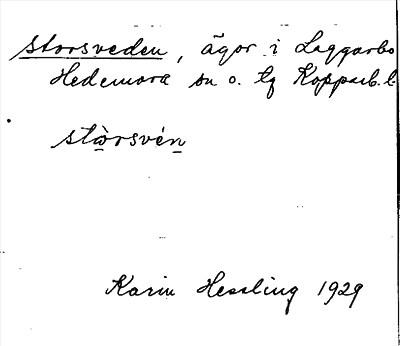 storsveden, ägor i Laggarbo
Hedemora sn o. tg Kopparb. l.
stòrsvén
Karin Hessling 1929